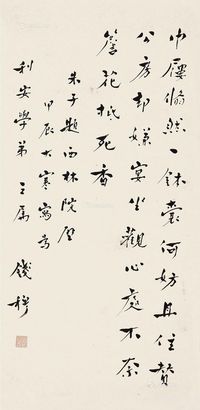 巾屨翛然一鉢囊何妨且住贊
公房却嫌宴坐觀心處不奈
簷花抵死香
朱子題西林院壁
甲辰大寒寫為
利安學弟 王屬 錢穆